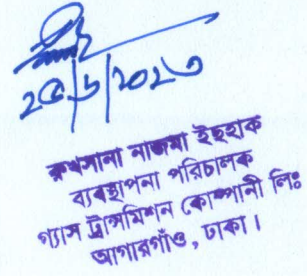 ২৫/৬/২০২৩
রুখসানা নাজমা ইছহাক
ব্যবস্থাপনা পরিচালক
গ্যাস ট্রান্সমিশন কোম্পানী লিঃ
আগারগাঁও, ঢাকা।